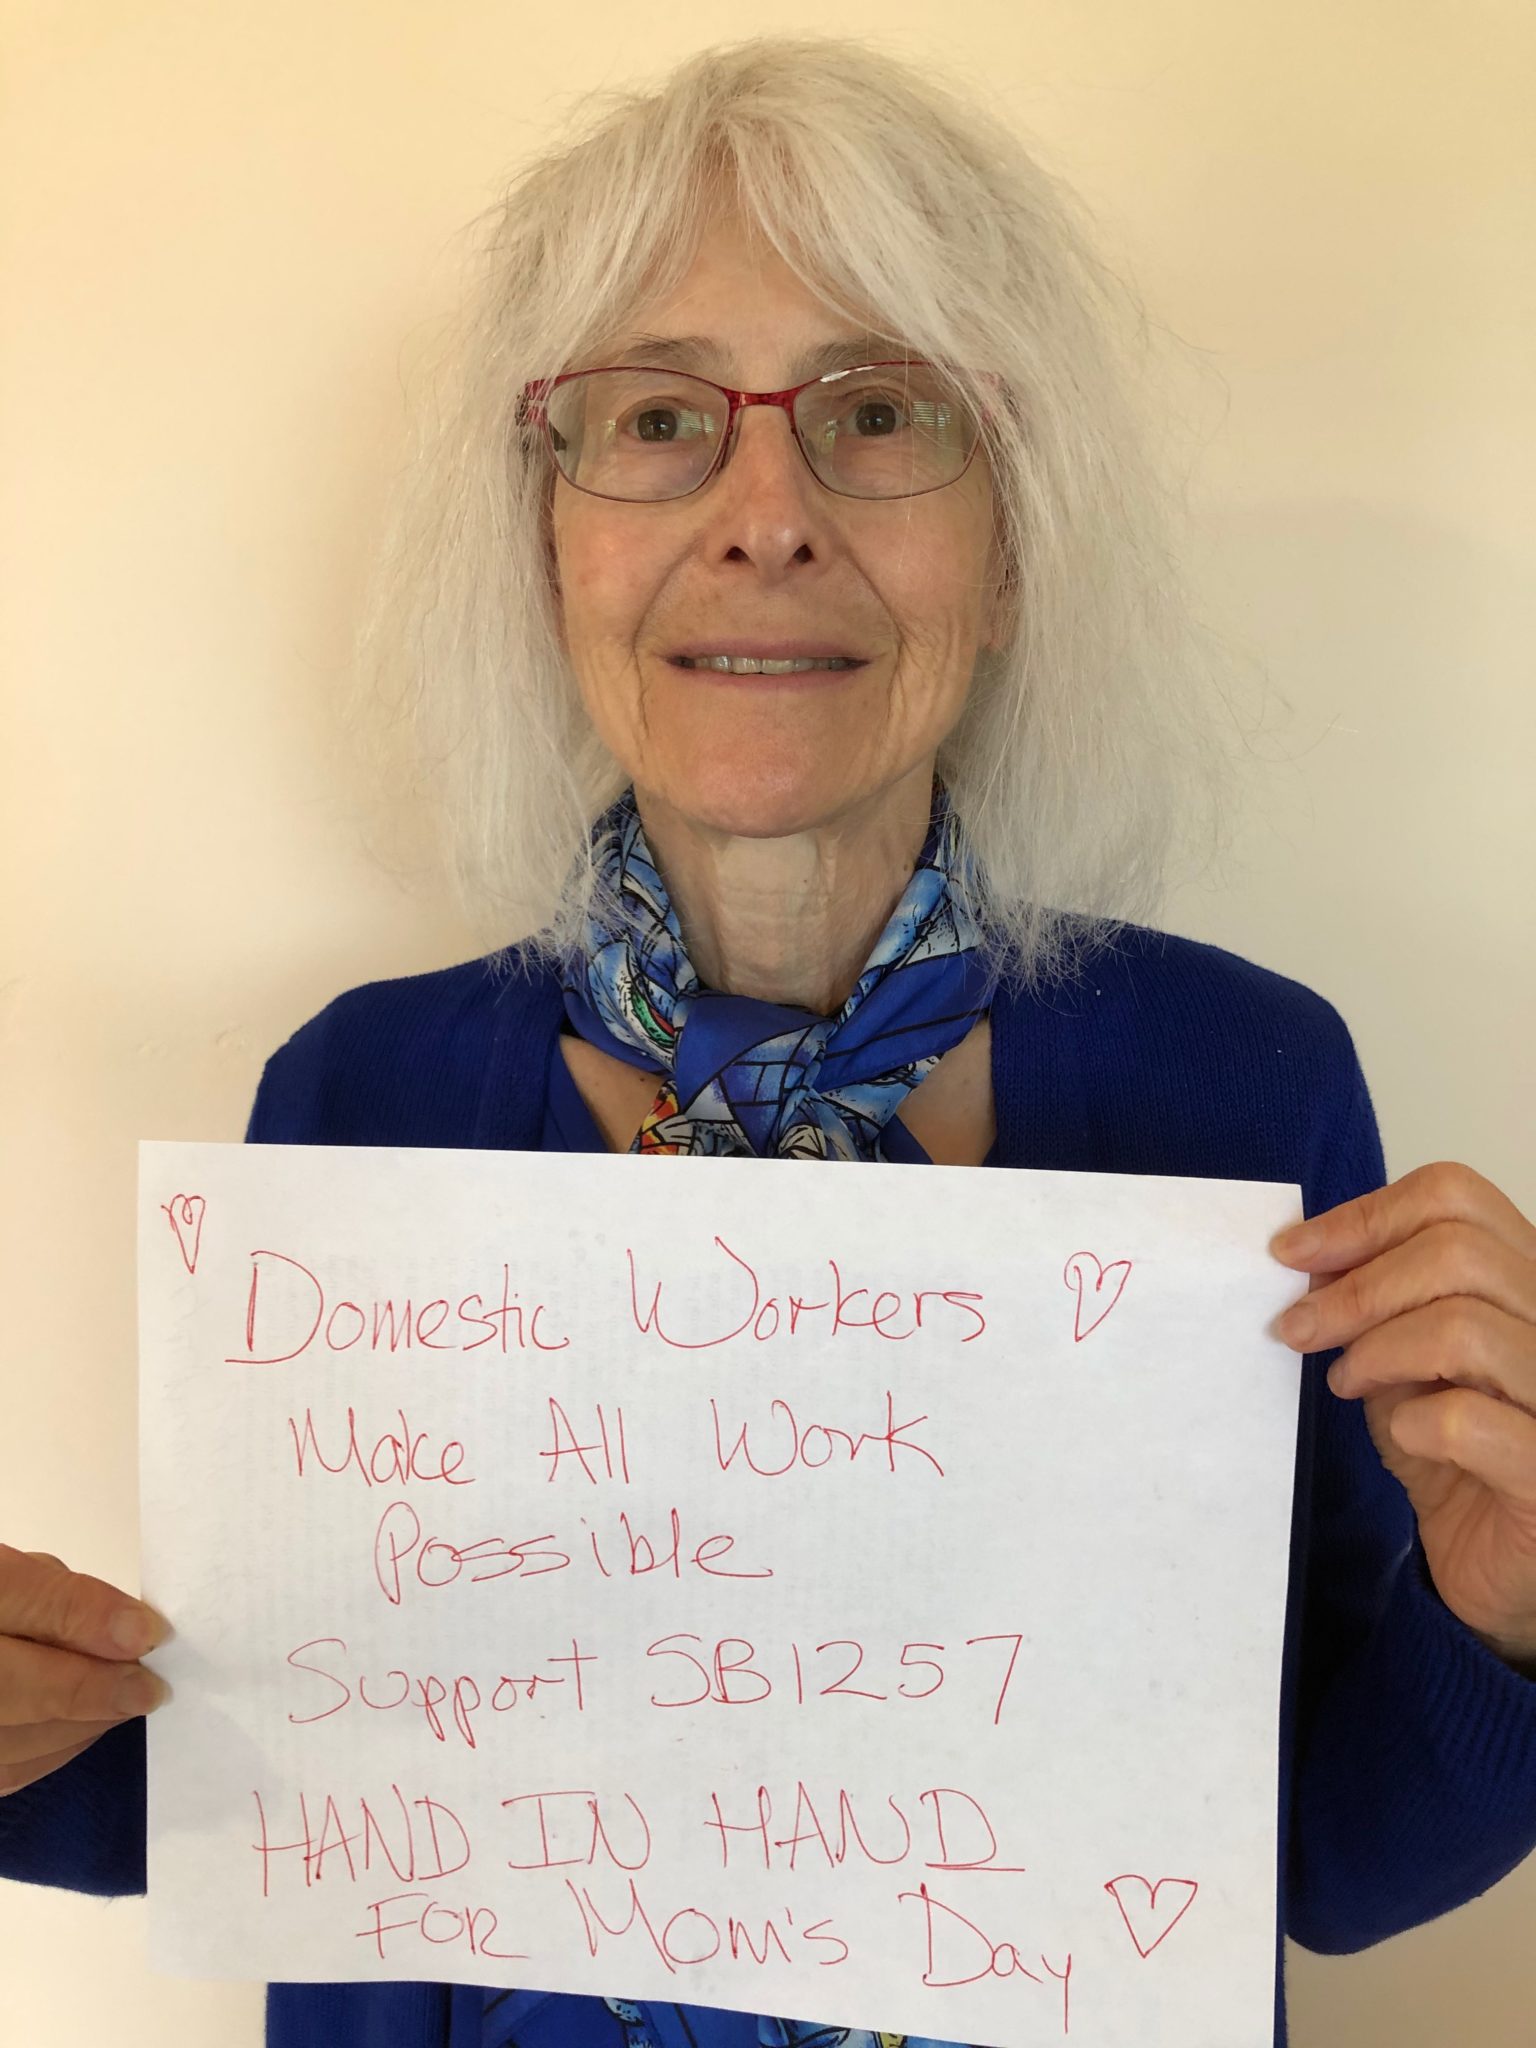 Domestic Workers
Make All Work
Possible
Support SB1257
HAND IN HAND
FOR Mom's Day